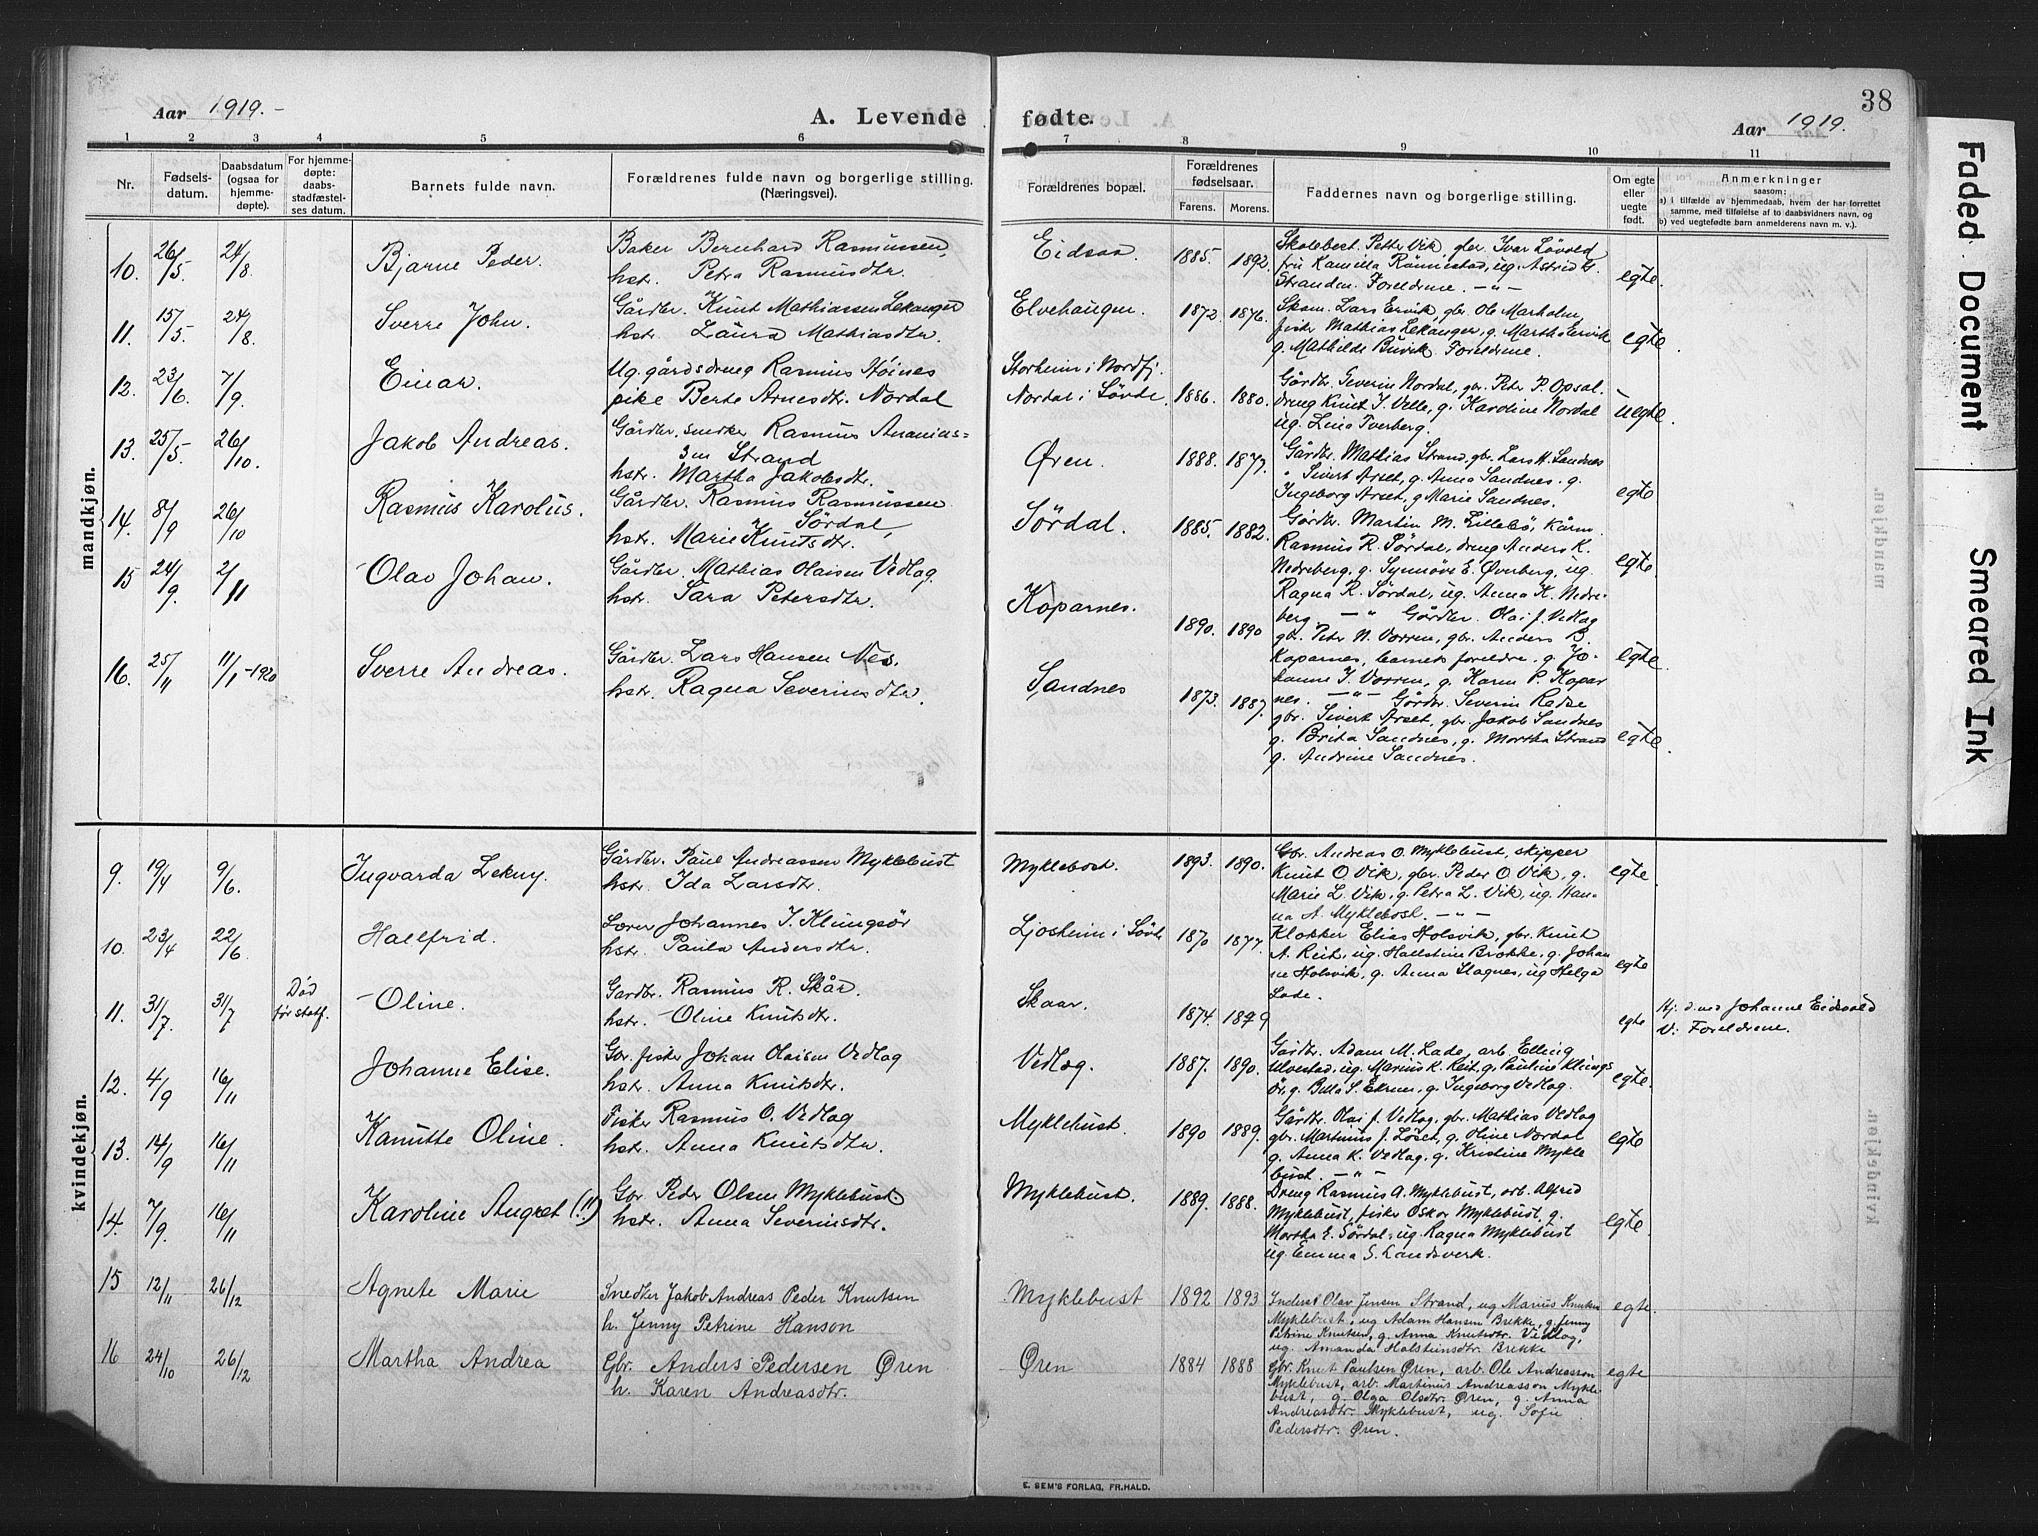 38
Aar 1919.-
A. Levende fødte.
Aar 1919.
1 2 3 4 5 6 7 8 9 10 11
Nr.
Fødsels-
datum.
Daabsdatum
(ogsaa for
hjemme-
døpte).
For hjemme-
døpte:
daabs-
stadfæstel-
ses datum.
Barnets fulde navn.
Forældrenes fulde navn og borgerlige stilling.
(Næringsvei).
Forældrenes bopæl.
Forældrenes
fødselsaar.
Farens. Morens.
Faddernes navn og borgerlige stilling.
Om egte
eller
uegte
født.
Anmerkninger
saasom:
a) i tilfælde av hjemmedaab, hvem der har forrettet
samme, med tilføielse af to daabsvidners navn, og
b) ved uegtefødte barn anmelderens navn m. v.).
mandkjøn.
10. 26/5 24/8. Bjarne Peder.
Baker Bernhard Rasmussen,
hstr. Petra Rasmusdtr.
Eidsaa. 1885. 1892.
Skolebest. Petter Vik, gbr. Ivar Løvold
fru Kamilla Rønnestad, ug. Astrid
Stranden. Foreldrene. -"-
egte.
11. 15/5 24/8. Sverre John.
Gårdbr. Knut Mathiassen Lekanger
hstr. Laura Mathiasdtr.
Elvehaugen. 1872. 1876.
Skom. Lars Ervik, gbr. Ole Marholm,
fisker Mathias Lekanger, g. Martha Ervik
g. Mathilde Buvik. Foreldrene.
egte.
12. 23/6 7/9. Einar.
Ug. gårdsdreng Rasmus Høines
pike Berte Arnesdtr. Nordal
Storheim i Nordfj.
Nordal i Søvde. 1886. 1880.
Gårdbr. Severin Nordal, gbr. Peter P. Opsal.
dreng Knut J. Velle, g. Karoline Nordal
ug. Lina Tverberg.
uegte.
13. 25/5. 26/10. Jakob Andreas.
Gårdbr. snedker Rasmus Ananias=
sen Strand
hstr. Martha Jakobsdtr.
Øren. 1888. 1877.
Gårdbr. Mathias Strand, gbr. Lars H. Sandnes
" Sivert Årset, g. Anna Sandnes. g.
Ingeborg Årset, g Marie Sandnes.
egte
14. 8/9 26/10 Rasmus Karolus.
Gårdbr. Rasmus Rasmussen
Sørdal,
hstr. Marie Knutsdtr.
Sørdal. 1885. 1882.
Gårdbr. Martin M. Lillebø, kårm.
Rasmus R. Sørdal, dreng Anders K.
Nedreberg, g. Synnøve E. Øverberg, ug.
Ragna R. Sørdal, ug. Anna K. Nedre-
berg -"-
egte.
15 24/9. 2/11 Olav Johan.
Gårdbr. Mathias Olaisen Vedlag
hstr. Sara Petersdtr.
Koparnes. 1890. 1890
Gårdbr. Olai J. Vedlag
gbr. Peter N. Vorren, gbr. Anders B.
Koparnes, barnets foreldre. g. Jo-
hanne J. Vorren, g. Karen P. Kopar
nes. -"-
egte.
16. 25/11 11/1-1920 Sverre Andreas.
Gårdbr. Lars Hansen Nes.
hstr. Ragna Severinsdtr
Sandnes 1873. 1887.
Gårdbr. Severin Redse
gbr. Sivert Årset, gbr. Jakob Sandnes
g. Brita Sandnes, g. Martha Strand
g. Andrine Sandnes.
egte.
kvindekjøn.
9. 19/4 9/6. Ingvarda Lekny.
Gårdbr. Paul Andreassen Myklebust
hstr. Ida Larsdtr.
Myklebost. 1893. 1890.
Gbr. Andreas O. Myklebust, skipper
Knut O. Vik, gbr. Peder O. Vik, g.
Marie L. Vik, g. Petra L. Vik, ug. Han-
na A. Myklebost. -"-
egte.
10. 23/4 22/6 Hallfrid.
Lærer Johannes J. Klungsør
hstr. Paula Andersdtr.
Ljosheim i Søvde 1870 1877.
Klokker Elias Holsvik, gbr. Knut
A. Reit, ug. Hallstine Brekke, g. Johan
ne Holsvik, g. Anna Slagnes, ug Helga
Lade.
egte
11. 31/7. 31/7 Død
før statf. Oline.
Gardbr. Rasmus R. Skår.
hstr. Oline Knutsdtr.
Skaar. 1874. 1879
egte
Hj. d. ved Johanne Eidsvold
V: Foreldrene.
12. 4/9 16/11 Johanne Elise.
Gbr. fisker Johan Olaisen Vedlag
hstr. Anna Knutsdtr.
Vedlog. 1887. 1890.
Gårdbr. Adam M. Lade, arb. Elling
Ulvestad, ug. Marius K. Reit, g. Pauline Klungs
ør, g. Bella S. Ekrene, g. Ingeborg Vedlag.
egte.
13. 14/9 16/11 Kanutte Oline.
Fisker Rasmus O. Vedlag
hstr. Anna Knutsdtr.
Myklebust. 1890 1889.
Gårdbr. Olai J. Vedlag, gbr. Mathias Vedlag
gbr. Martinus J. Løset, g. Oline Nordal
g. Anna K. Vedlag, g. Kristine Mykle
bust. -"-
egte
14. 7/9. 16/11 Karoline Angret (!!)
Gbr. Peder Olsen Myklebust
hstr. Anna Severinsdtr.
Myklebust. 1889. 1888.
Dreng Rasmus A. Myklebust, arb. Alfred
Myklebust, fisker Oskar Myklebust, g.
Martha E. Sørdal, ug. Ragna Myklebust
ug. Emma S. Landsverk.
egte
15 12/11 26/12 Agnete Marie
Snedker Jakob Andreas Peder Knutsen
h. Jenny Petrine Hanson
Myklebust 1892 1893
Inderst Olav Jensen Strand, ug Marius Knutsen
Myklebust, ug Adam Hansen Brekke, g. Jenny
Petrine Knutsen, g. Anna Knutsdtr. Vedlog,
ug. Amanda Halsteinsdtr. Brekke
egte.
16 24/10 26/12 Martha Andrea
Gbr. Anders Pedersen Øren
h. Karen Andreasdtr.
Øren 1884 1888
Gbr. Knut Paulsen Øren, arb. Ole Andreasson
Myklebust, arb. Martinus Andreasson Mykle
bust, g. Olga Olsdtr. Øren, g. Anna
Andreasdtr. Myklebust, ug. Sofie
Pedersdtr. Øren.
egte
E. SEM'S FORLAG, FR.HALD.
Faded Document
Smeared Ink